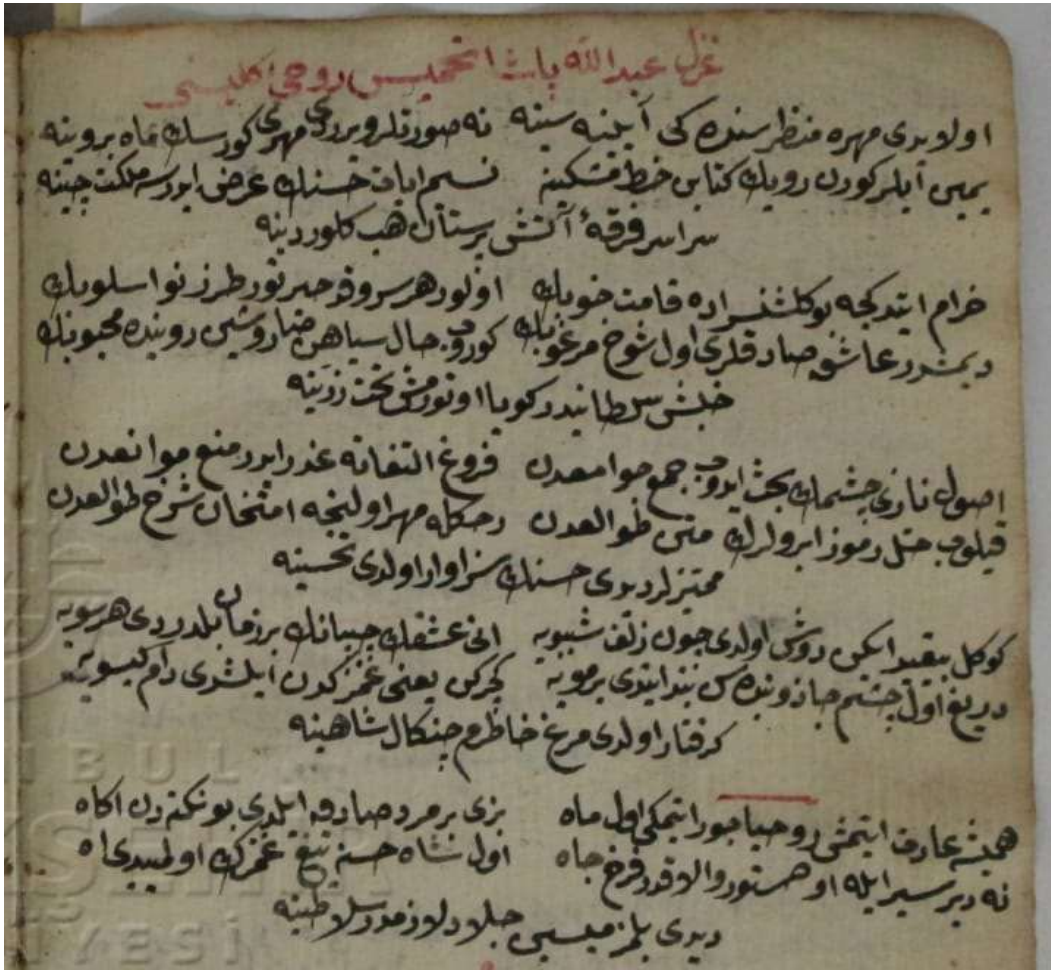 غزل عبد الله پاشا تخمیس روحی اکلینی
اولایدی مهره منظر سنده کی آیینه سینه نه صورتلر ویرردی مهری کورسك ماه پروینه
یمین ایلر کورن رویك کتابن خط مشکینه نسیم ایات حسنك عرض ایدرسه ملکت چینه
سراسر فرقهٔ آتش پرستان هب کلور دینه
خرام ایتدکجه بو کلشنسراده قامت خوبك اولور هر سرو قد حیرتور طرز نو اسلوبك
دیمشدر عاشق صادقلری اول شوخ مرغوبك کوروب خال سیاهن ضار وشین روینده محبوبك
حبش سلطانیدر کویا اوتورمش تخت زرینه
اصول نازی چشمك بحث ایدوب جمع جوامعدن فروغ التفاته غدر ایدر منع موانعدن
قیلوب حل رموز ابرولرك متن طوالعدن رحکله مهر اولنجه امتحان شرح طوالعدن
ممیزلر دیدی حسنك سزاوار اولدی تحسینه
کوکل بیقید ایکن دوش اولدی چون زلف شببویه انی عشقك چیبانك بر زمان یلدردی هر سویه
دریغ اول چشم جادو بنده س بند ایتدی بر مویه کچرکن یعنی غمزکدن ایلشدی دام کیسویه
کرفتار اولدی مرغ خاطرم چنکال شاهینه
همیشه عادت ایتمش روحیا جور ایتمکی اول ماه بزی بر مرد صادق ایلدی بو نکته دن اکاه
نه دیر سیر ایله او دستور والا قدر فرخ جاه اول شاه حسنه تیغ غمزك اولمیدی اه
دیدی بلمزمیسین جلاد لازمدر سلاطینه
ISTANBUL